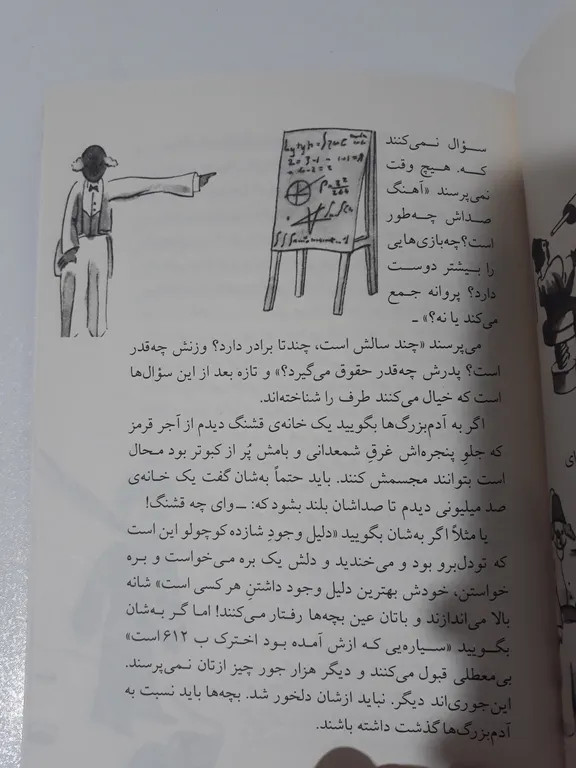 سؤال نمی‌کنند
که. هیچ وقت
نمی‌پرسند «آهنگ
صداش چه‌طور
است؟ چه‌بازی‌هایی
را بیشتر دوست
دارد؟ پروانه جمع
می‌کند یا نه؟» ــ
می‌پرسند «چند سالش است، چندتا برادر دارد؟ وزنش چه‌قدر
است؟ پدرش چه‌قدر حقوق می‌گیرد؟» و تازه بعد از این سؤال‌ها
است که خیال می‌کنند طرف را شناخته‌اند.
اگر به آدم‌بزرگ‌ها بگویید یک خانه‌ی قشنگ دیدم از آجر قرمز
که جلوِ پنجره‌اش غرقِ شمعدانی و بامش پُر از کبوتر بود محال
است بتوانند مجسمش کنند. باید حتماً به‌شان گفت یک خانه‌ی
صد میلیونی دیدم تا صداشان بلند بشود که: ــ وای چه قشنگ!
یا مثلاً اگر به‌شان بگویید «دلیل وجودِ شازده کوچولو این است
که تودل‌برو بود و می‌خندید و دلش یک بره می‌خواست و بره
خواستن، خودش بهترین دلیل وجود داشتنِ هر کسی است» شانه
بالا می‌اندازند و باتان عین بچه‌ها رفتار می‌کنند! اما گر به‌شان
بگویید «سیاره‌یی که ازش آمده بود اخترک ب ۶۱۲ است»
بی‌معطلی قبول می‌کنند و دیگر هزار جور چیز ازتان نمی‌پرسند.
این‌جوری‌اند دیگر. نباید ازشان دلخور شد. بچه‌ها باید نسبت به
آدم‌بزرگ‌ها گذشت داشته باشند.